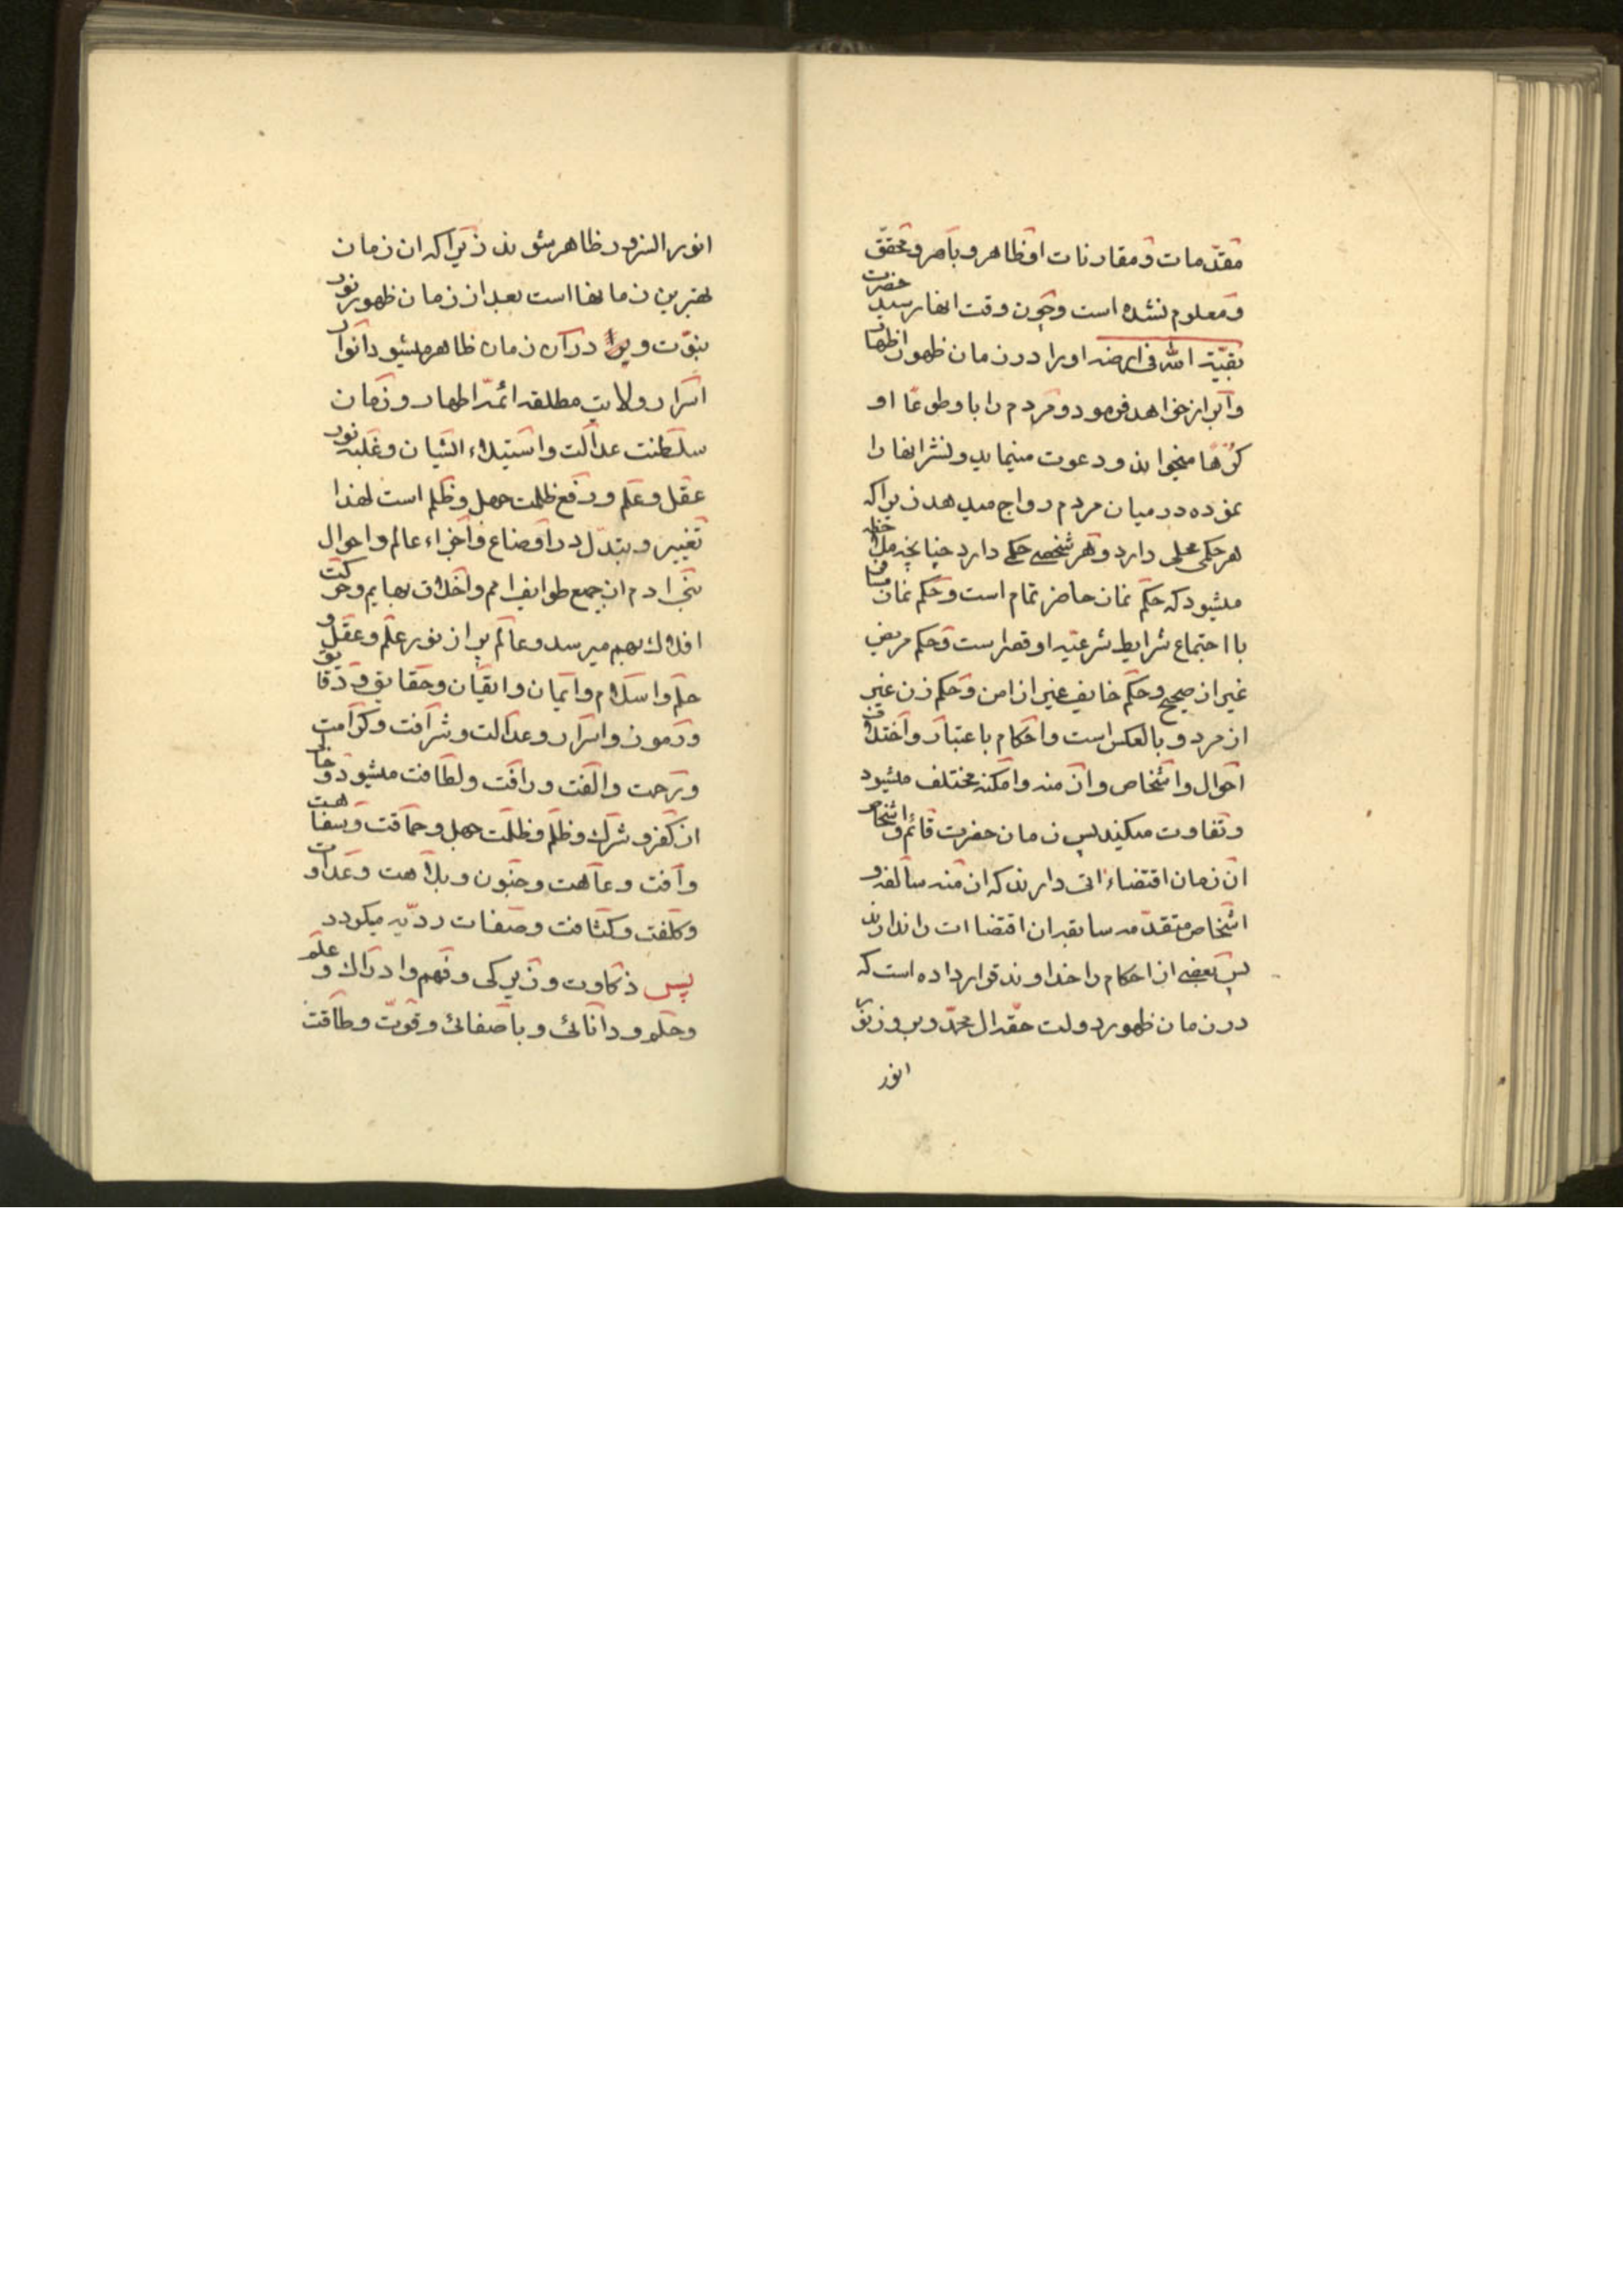 مقدّمات و مقارنات او ظاهر و باهر و محقّق
و معلوم نشده است و چون وقت انها رسید حضرت
بقیّة الله فی ارضه او را در زمان ظهور اظهار
و ابراز خواهد فرمود و مردم را باو طوعًا او
کرهًا میخواند و دعوت مینماید و نشر انها را
نموده در میان مردم رواج میدهد زیرا که
هر حکمی محلی دارد و هر شخصی حکمی دارد چنانچه ملاحظه
میشود که حکم نماز حاضر تمام است و حکم نماز مسافر
با اجتماع شرایط شرعیّه او قصر است و حکم مریض
غیر از صحیح و حکم خایف غیر از امن و حکم زن غیر
از مرد و بالعکس است و احکام باعتبار و اختلاف
احوال و اشخاص و ازمنه و امکنه مختلف میشود
و تفاوت میکند پس زمان حضرت قائم و اشخاص
ان زمان اقتضاءاتی دارند که ازمنه سالفه و
اشخاص متقدّمه سابقه ان اقتضاات را ندارند
پس بعضی از احکام را خداوند قرار داده است که
در زمان ظهور دولت حقه ال محمّد و بروز نیّر
انور
انور النزود ظاهر شوند زیرا که ان زمان
بهترین زمانها است بعد از زمان ظهور نور
نبوّت و در آن زمان ظاهر میشود انوار
اسرار ولایت مطلقه ائمّه اطهار و زمان
سلطنت عدالت و استیلاء الشیان و غلبه نور
عقل و علم و رفع ظلمت جهل و ظلم است لهذا
تغییر و تبدّل در اوضاع و اجزاء عالم و احوال
بنی ادم از جمیع طوایف امم و اخلاق بهایم و حرکت
افلاک بهم میرسد و عالم پر از نور علم و عقل و
حلم و اسلام و ایمان و ایقان و حقایق و دقایق
و رموز و اسرار و عدالت و شرافت و کرامت
و ترحت و الفت و رافت و لطافت میشود و خالی
از کفر و شرک و ظلم و ظلمت جهل و حماقت و سفاهت
و آفت و عاهت و جنون و بلاهت و عداوت
و کلفت و کثافت و صفات ردیّه میگردد
پس ذکاوت و زیرکی و فهم و ادراک و علم
و حلم و دانائی و باصفائی و قوّت و طاقت